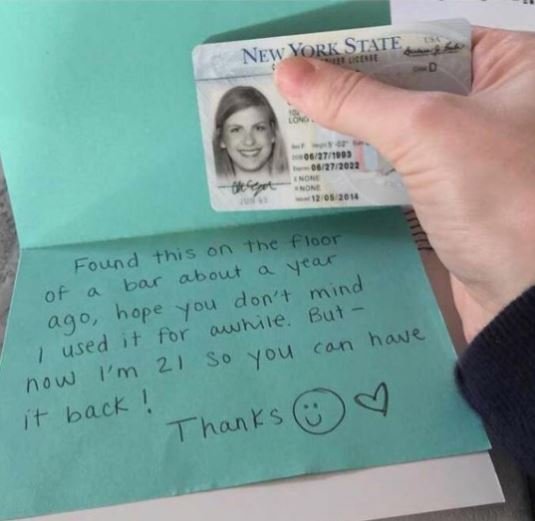 NEW YORK STATE USA
DRIVER LICENSE
D
LONG
06/27/1993
06/27/2022
NONE
NONE
12/05/2014
Found this on the floor
of a bar about a year
ago, hope you don't mind
I used it for awhile. But -
now I'm 21 so you can have
it back!
Thanks